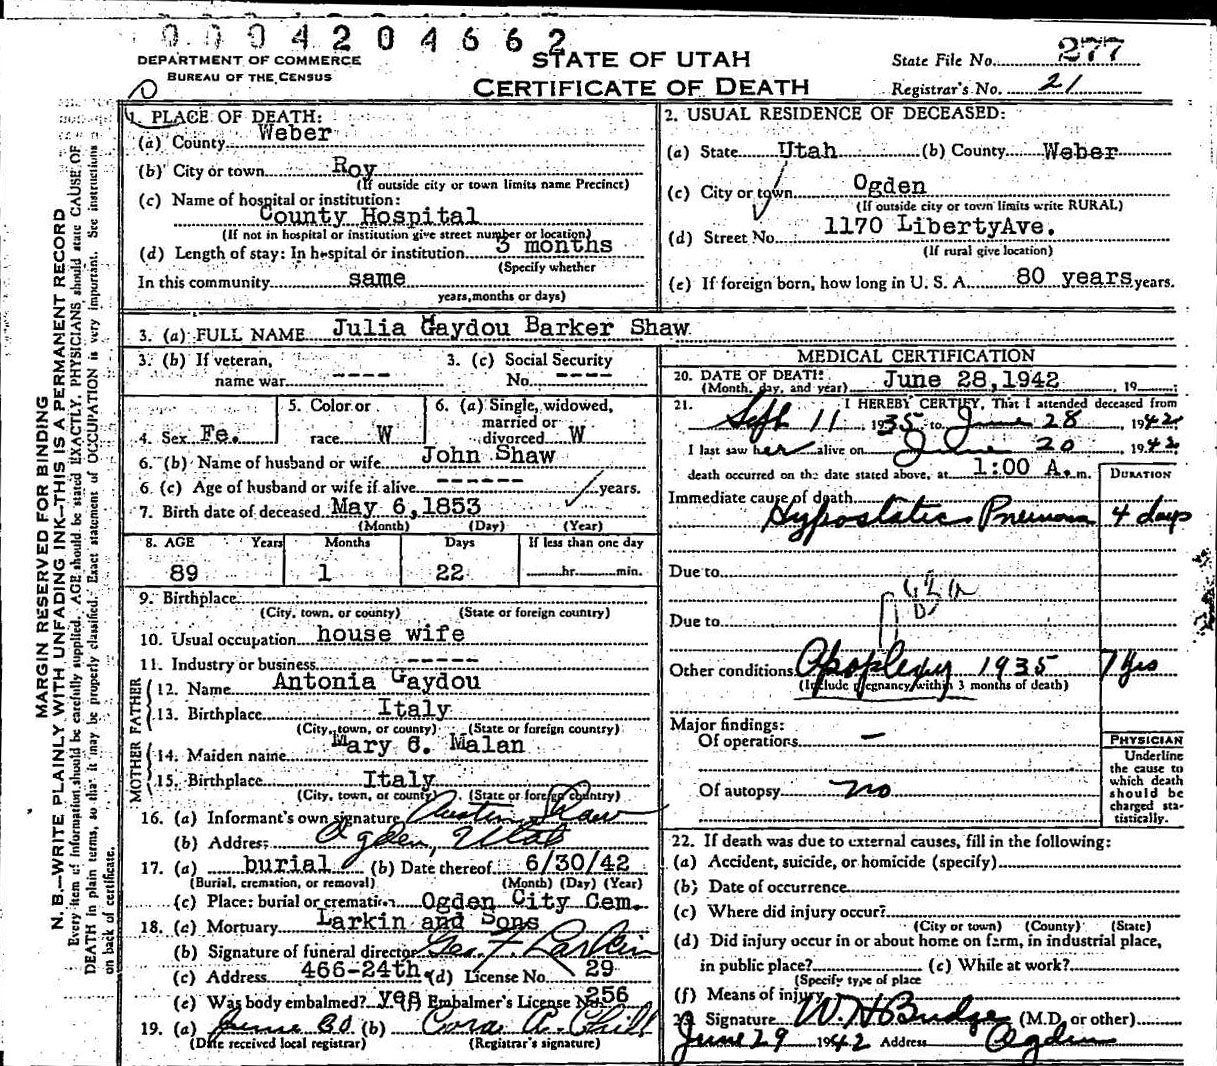 0004204662
DEPARTMENT OF COMMERCE
BUREAU OF THE CENSUS
STATE OF UTAH
CERTIFICATE OF DEATH
State File No. 277
Registrar's No. 21
MARGIN RESERVED FOR BINDING
N. B.—WRITE PLAINLY WITH UNFADING INK—THIS IS A PERMANENT RECORD
Every item of information should be carefully supplied. AGE should be stated EXACTLY. PHYSICIANS should state CAUSE OF
DEATH in plain terms, so that it may be properly classified. Exact statement of OCCUPATION is very important. See instructions
on back of certificate.
1. PLACE OF DEATH:
(a) County Weber
(b) City or town Roy
(If outside city or town limits name Precinct)
(c) Name of hospital or institution:
County Hospital
(If not in hospital or institution give street number or location)
(d) Length of stay: In hospital or institution 3 months
(Specify whether
In this community same
years, months or days)
2. USUAL RESIDENCE OF DECEASED:
(a) State Utah (b) County Weber
(c) City or town Ogden
(If outside city or town limits write RURAL)
(d) Street No. 1170 LibertyAve.
(If rural give location)
(e) If foreign born, how long in U. S. A. 80 years years.
3. (a) FULL NAME Julia Gaydou Barker Shaw
3. (b) If veteran, name war ----
3. (c) Social Security No. ----
4. Sex Fe.
5. Color or race W
6. (a) Single, widowed, married or divorced W
6. (b) Name of husband or wife John Shaw
6 (c) Age of husband or wife if alive ------ years.
7. Birth date of deceased May 6,1853
(Month) (Day) (Year)
8. AGE Years Months Days If less than one day
89 1 22 hr. min.
9. Birthplace
(City, town, or county) (State or foreign country)
10. Usual occupation house wife
11. Industry or business -----
FATHER
12. Name Antonia Gaydou
13. Birthplace Italy
(City, town, or county) (State or foreign country)
MOTHER
14. Maiden name Mary C. Malan
15. Birthplace Italy
(City, town, or county) (State or foreign country)
16. (a) Informant's own signature Austin Shaw
(b) Address Ogden, Utah
17. (a) burial (b) Date thereof 6/30/42
(Burial, cremation, or removal) (Month) (Day) (Year)
(c) Place: burial or cremation Ogden City Cem.
18. (a) Mortuary Larkin and Sons
(b) Signature of funeral director Geo. F. Larkin
(c) Address 466-24th. (d) License No. 29
(e) Was body embalmed? yes (f) Embalmer's License No. 256
19. (a) June 30 (b) Cora A. Chill
(Date received local registrar) (Registrar's signature)
MEDICAL CERTIFICATION
20. DATE OF DEATH: June 28,1942, 19
(Month, day, and year)
21. I HEREBY CERTIFY, That I attended deceased from
Sept 11, 1935 to June 28, 1942
I last saw her alive on June 20, 1942
death occurred on the date stated above, at 1:00 A. m.
DURATION
Immediate cause of death
Hypostatic Pneumonia 4 days
Due to
Due to
Other conditions Apoplexy 1935 7 yrs
(Include pregnancy within 3 months of death)
Major findings:
Of operations —
Of autopsy no
PHYSICIAN
Underline
the cause to
which death
should be
charged sta-
tistically.
22. If death was due to external causes, fill in the following:
(a) Accident, suicide, or homicide (specify)
(b) Date of occurrence
(c) Where did injury occur?
(City or town) (County) (State)
(d) Did injury occur in or about home on farm, in industrial place,
in public place? (e) While at work?
(Specify type of place
(f) Means of injury
23. Signature W. H Budge (M.D. or other)
June 29 1942 Address Ogden